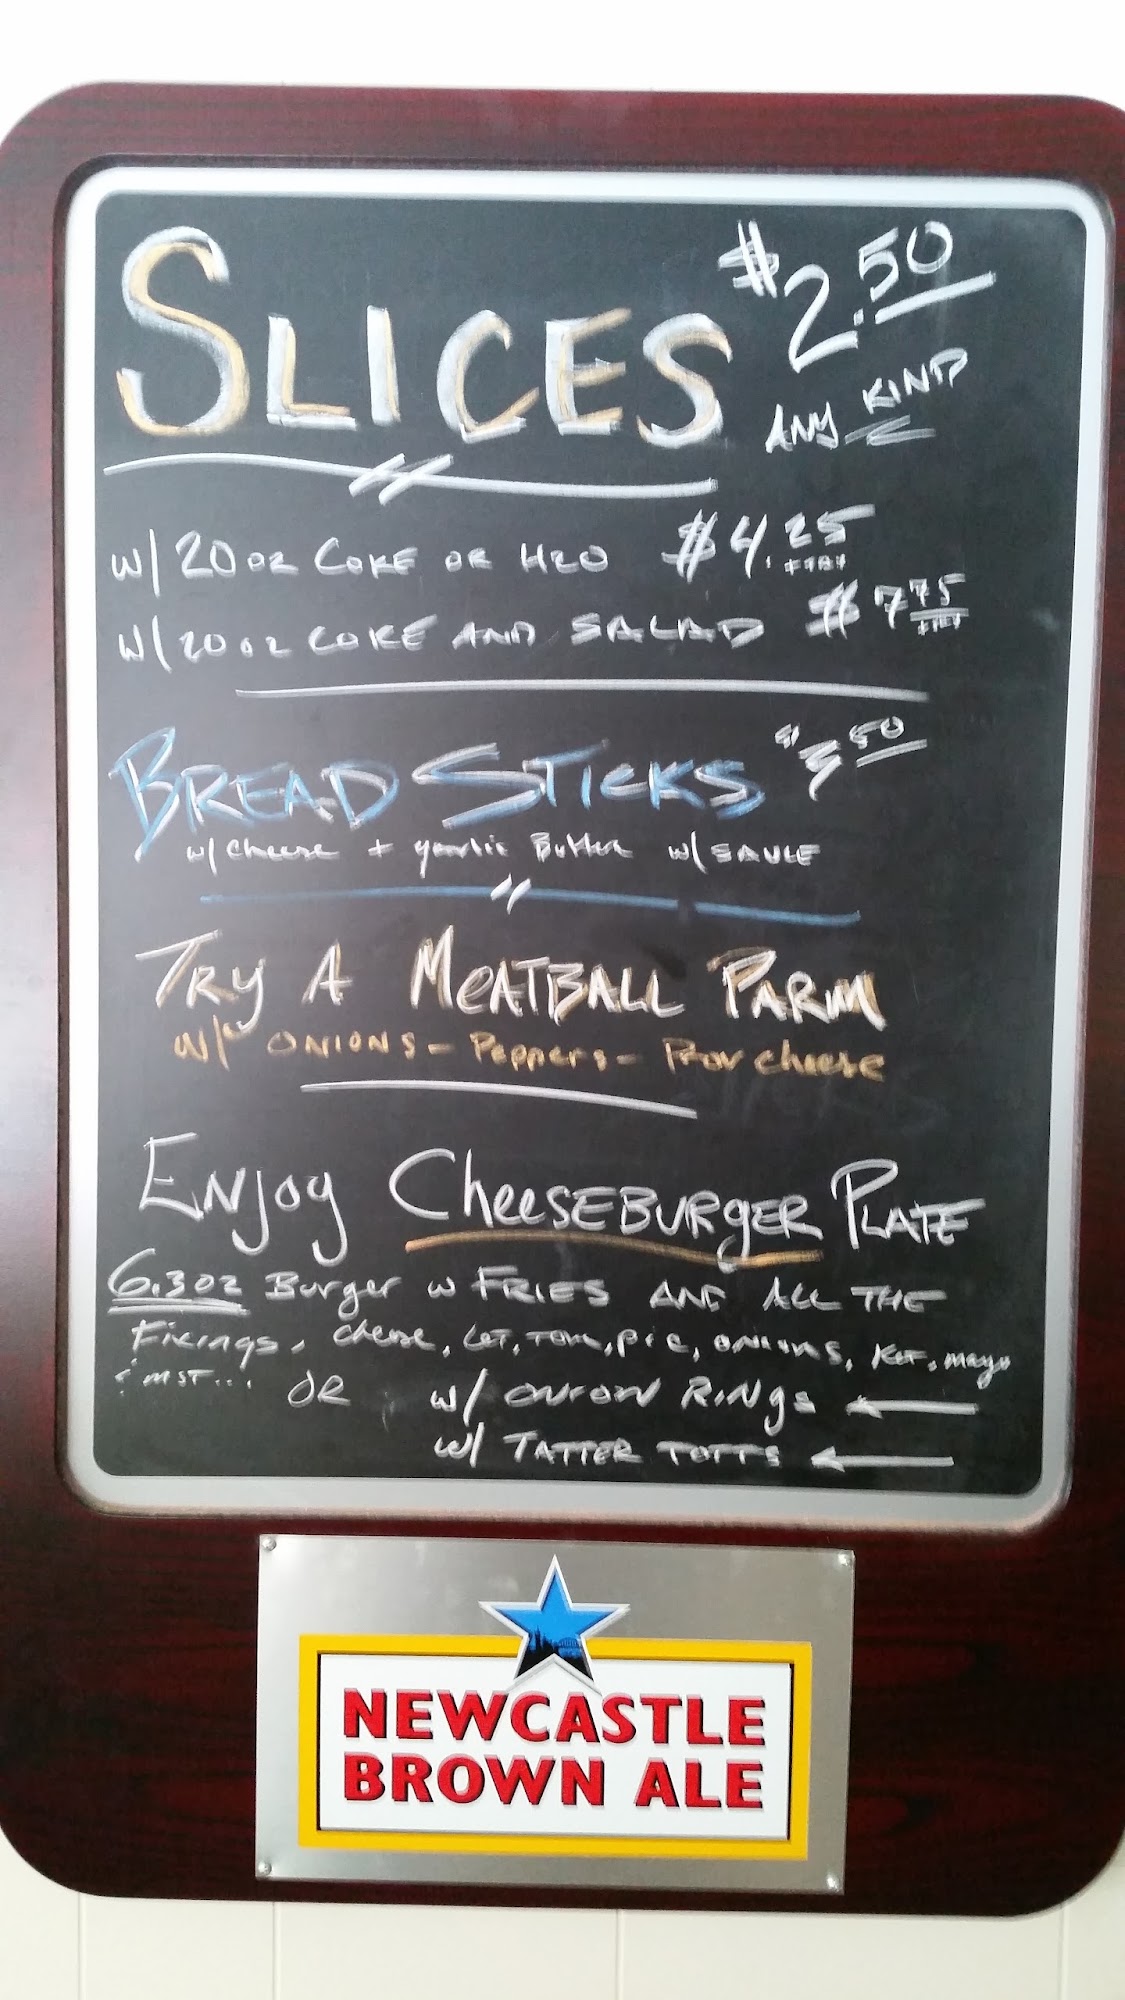 SLICES $2.50
ANY KIND
W/ 20 OZ COKE OR H2O $4.25 +TAX
W/ 20 OZ COKE AND SALAD $7.75 +TAX
BREAD STICKS $3.50
w/ cheese + garlic Butter w/ SAUCE
TRY A MEATBALL PARM
W/ ONIONS - Peppers - Prov cheese
ENJOY CHEESEBURGER PLATE
6.3oz Burger w FRIES AND ALL THE
Fixings, cheese, LET, TOM, pic, onions, KET, mayo
& MST... OR w/ ONION RINGS
w/ TATTER TOTTS
NEWCASTLE
BROWN ALE